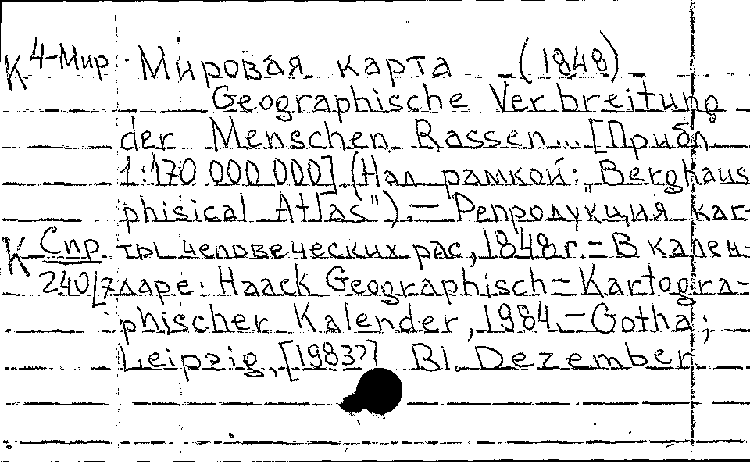 К 4-Мир Мировая карта (1848)
Geographische Verbreitung
der Menschen Rassen... [Прибл.
1:170 000 000] (Над рамкой: „Berghaus
phisical Atlas"). — Репродукция кар-
К Спр ты человеческих рас, 1848 г. — В кален-
240/7 даре: Haack Geographisch-Kartogra-
phischer Kalender, 1984. — Gotha;
Leipzig, [1983?] Bl. Dezember